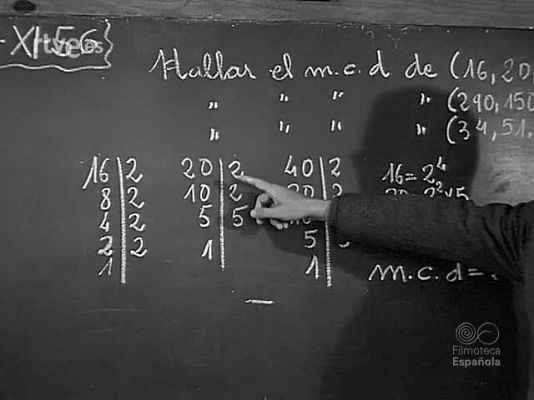 - XI-56
Hallar el m.c.d de (16, 20,
" " " " (290, 150
" " " " (34, 51.
16 | 2 20 | 2 40 | 2 16 = 2⁴
8 | 2 10 | 2 20 | 2 20 = 2² × 5
4 | 2 5 | 5
2 | 2 1 5
1 1 m.c.d =
Filmoteca
Española